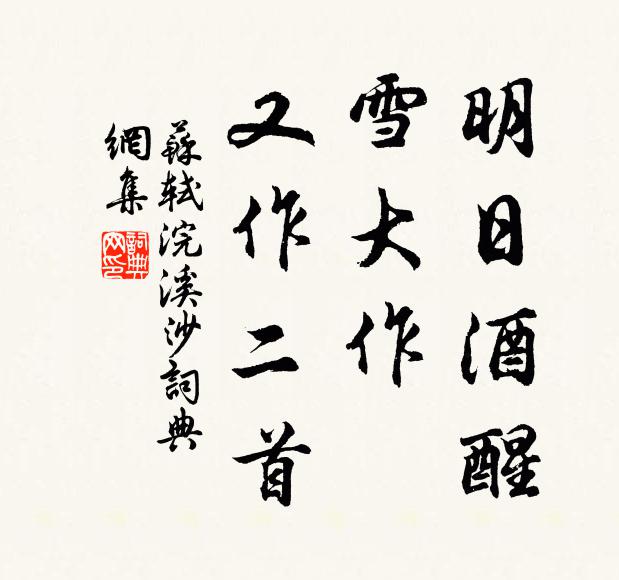 明日酒醒
雪大作
又作二首
蘇軾浣溪沙詞典
網集
詞典
网印